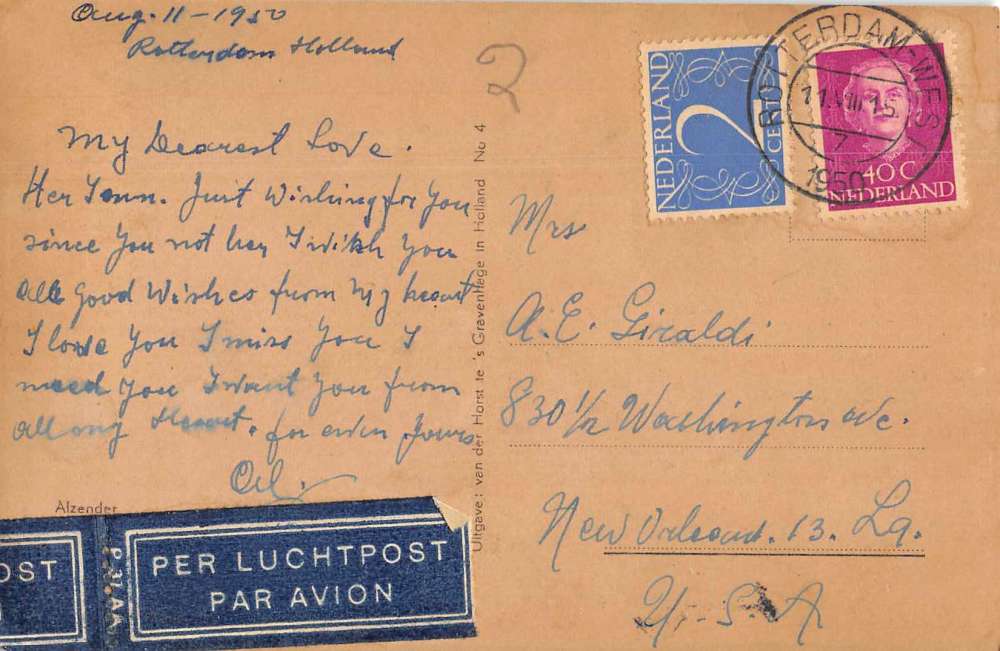 Aug. 11 - 1950
Rotterdam Holland
2
My Dearest Love.
Her I am. Just Wishing for You
since You not her I wish You
all good Wishes from My heart
I love You I miss You I
need you I want you from
all my Heart. for ever Yours
Al.
Afzender
PER LUCHTPOST
PAR AVION
OST
P 31AA
Uitgave: van der Horst te 's GravenHage in Holland No 4
NEDERLAND
2
CENT
ROTTERDAM-WEST
11.VIII 15
7
1950
40 C
NEDERLAND
Mrs
A. E. Giraldi
830 1/2 Washington ave.
New Orleans. 13. La.
U.-S.A